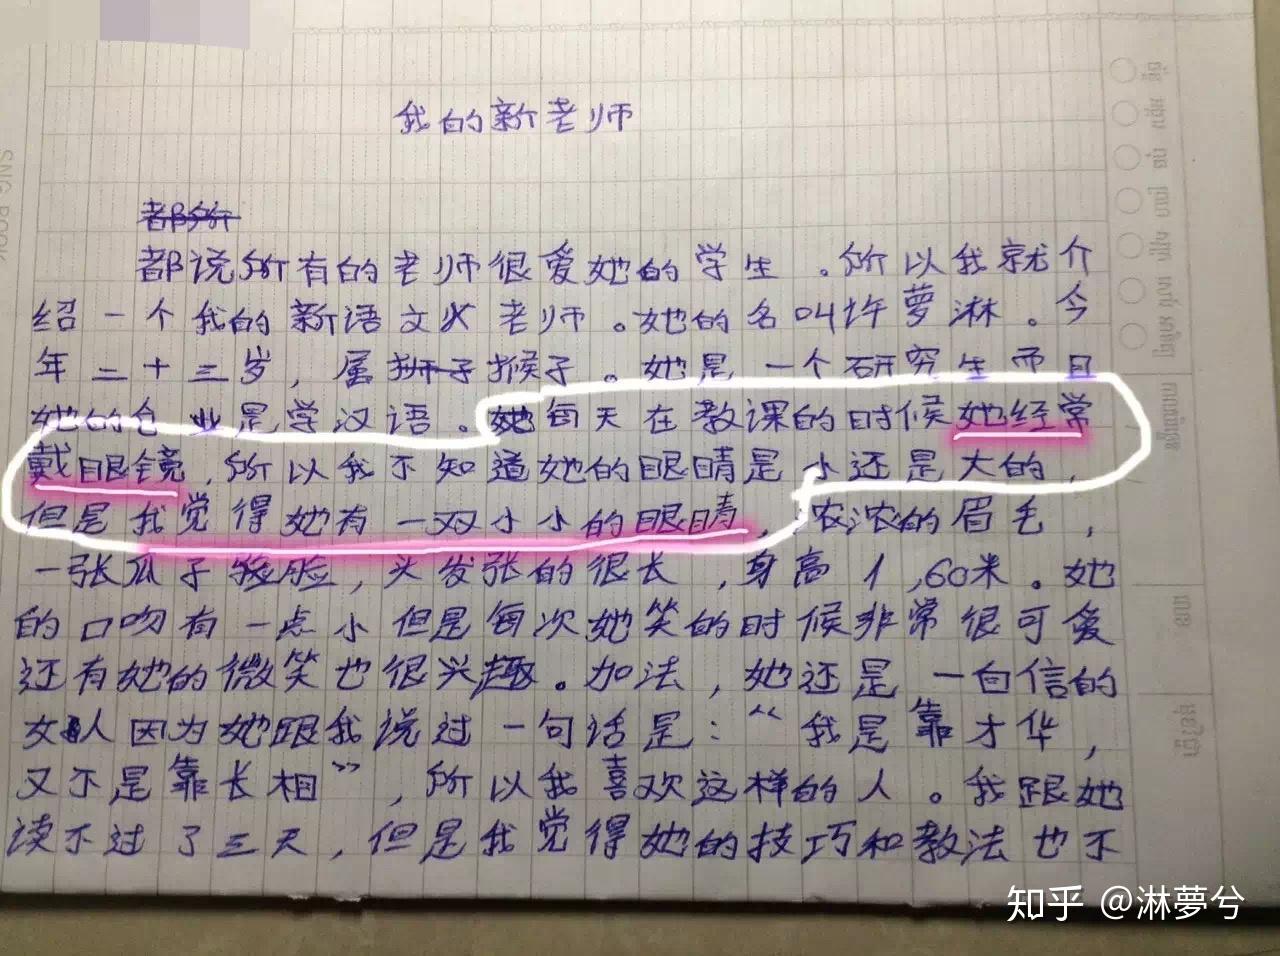 我的新老师
都所
都说所有的老师很爱她的学生。所以我就介
绍一个我的新语文 老师。她的名叫许萝淋。今
年二十三岁，属狮子猴子。她是一个研究生而且
她的 业是学汉语。她每天在教课的时候她经常
戴眼镜，所以我不知道她的眼睛是小还是大的，
但是我觉得她有一双小小的眼睛，浓浓的眉毛，
一张瓜子 脸，头发张的很长，身高1,60米。她
的口吻有一点小但是每次她笑的时候非常很可爱
还有她的微笑也很兴趣。加法，她还是一自信的
女人因为她跟我说过一句话是：“我是靠才华，
又不是靠长相”，所以我喜欢这样的人。我跟她
读不过了三天，但是我觉得她的技巧和教法也不
SNG BOOK
知乎 @淋夢兮